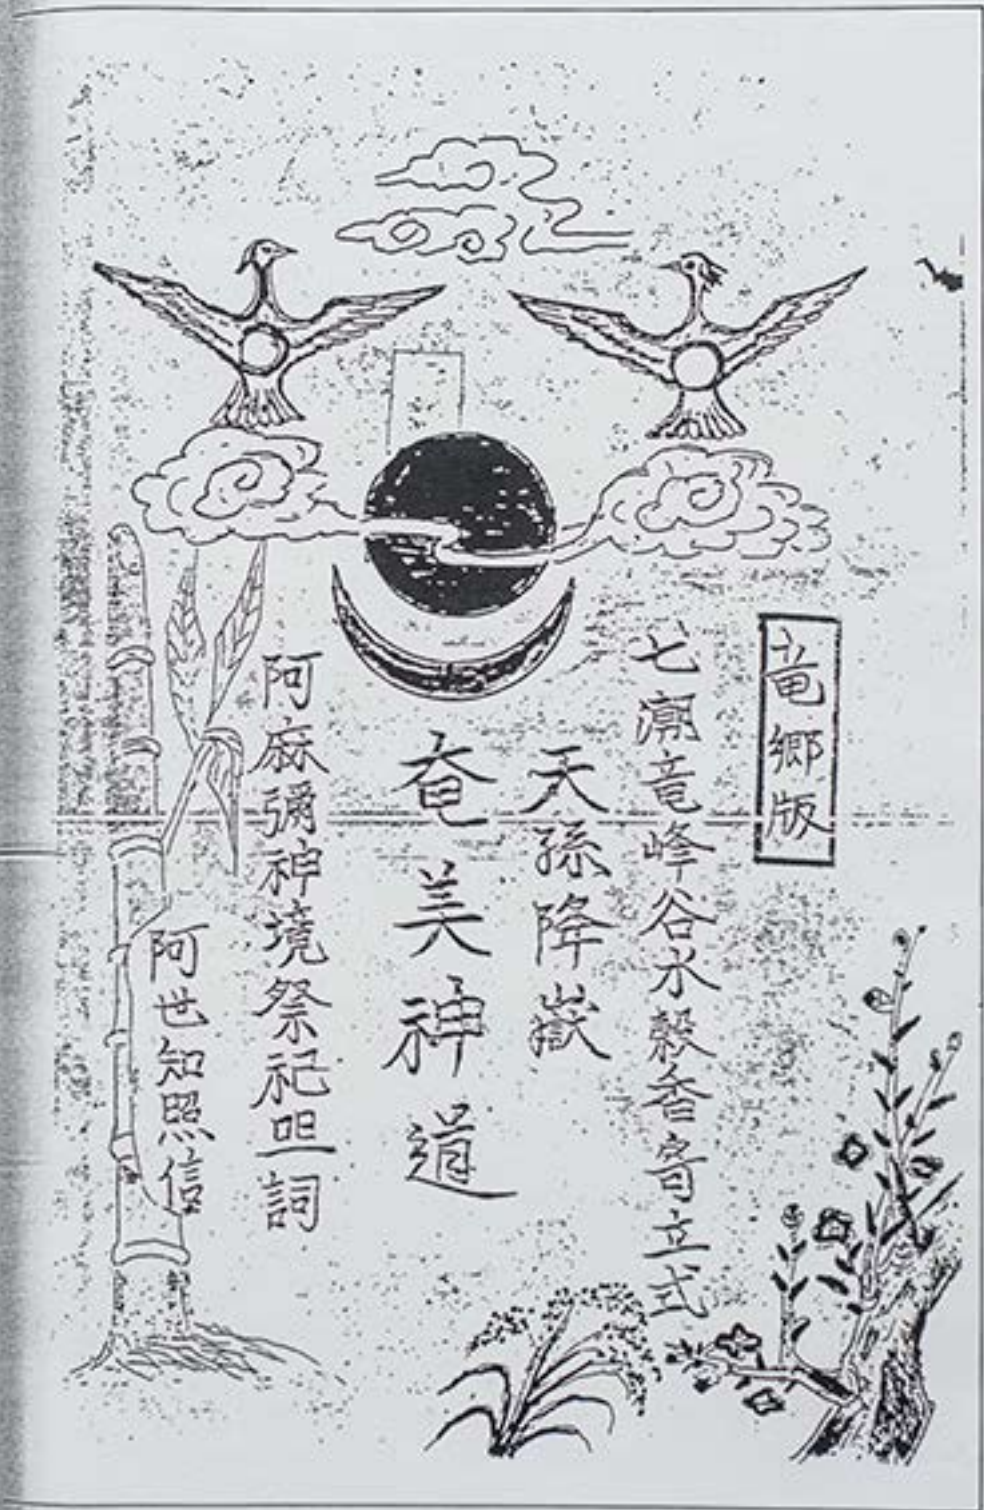 竜郷版
七竜峰谷水穀香立式
天孫降嶽
奄美神道
阿麻彌神境祭祀呾詞
阿世知照信